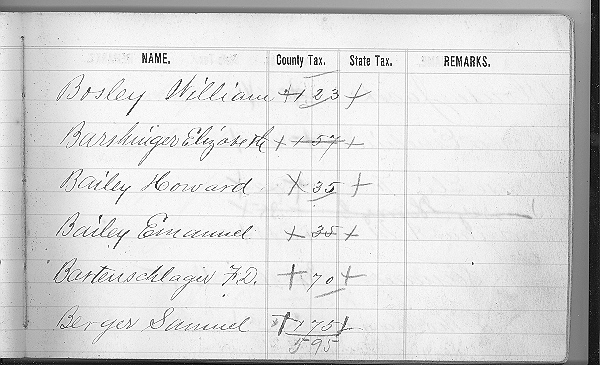 NAME. County Tax. State Tax. REMARKS.
Bosley William + 1 23 +
Barshinger Elizabeth + 1 57 +
Bailey Howard + 35 +
Bailey Emanuel + 35 +
Bartenschlager F.D. + 70 +
Berger Samuel + 1 75 +
5 95